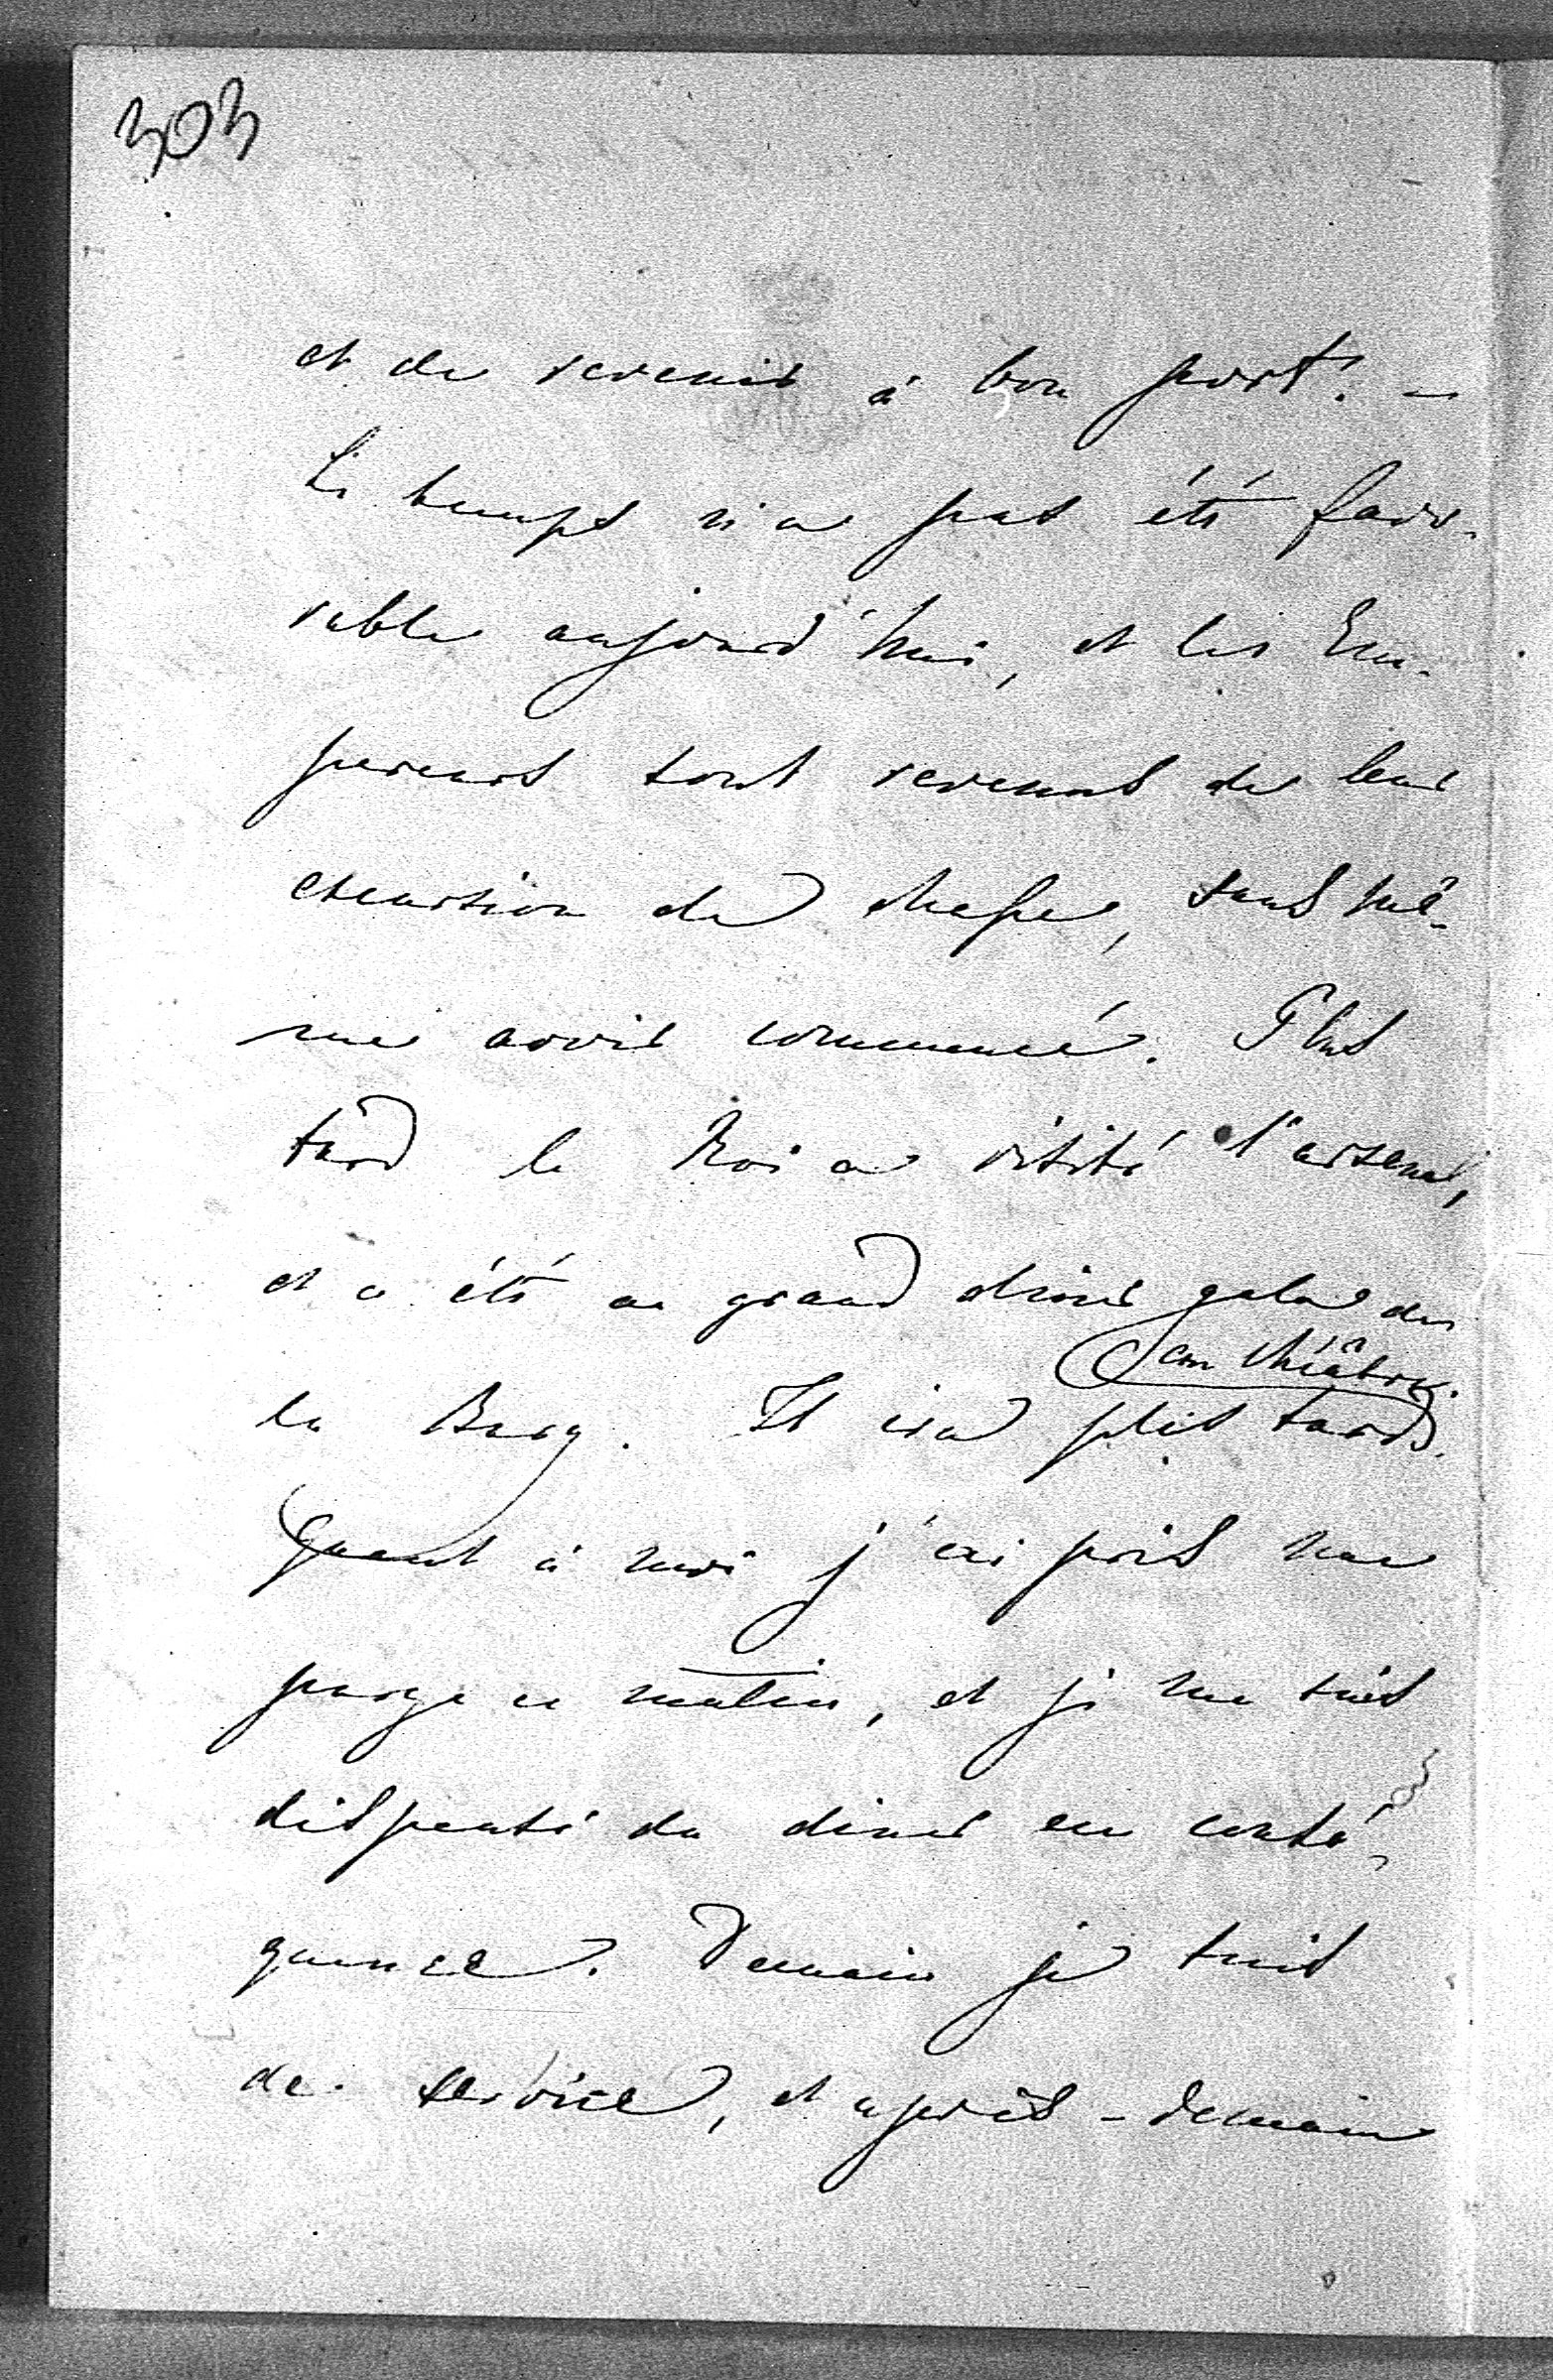 303
et de revenir à bon port! —
Le temps n'a pas été favo-
rable aujourd'hui, et les Em-
pereurs sont revenus de leur
excursion de chasse, sans mê-
me avoir commencé. Plus
tard le Roi a visité l'arsenal,
et a été au grand diner gala de
la Burg. Il ira plus tard
au théâtre.
Quant à moi j'ai pris une
purge ce matin, et je me suis
dispensé du diner en consé-
quence. Demain je suis
de service, et après-demain